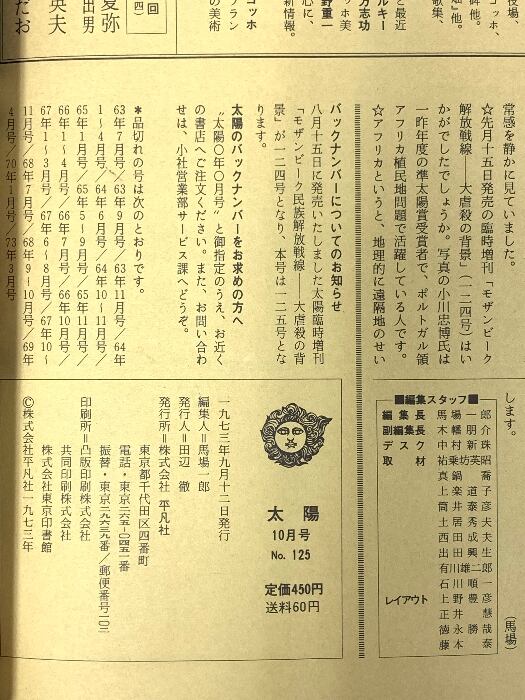 役場、
コッホ、
群他。
畑』他。
歌集、
と最近
ルキー
方志功
ッホ美
野重一
心に、
新情報。
コッホ
フラン
の美術
回
（四）
夏弥
出男
央夫
だお
常感を静かに見ていました。
☆先月十五日発売の臨時増刊「モザンビーク
解放戦線　大虐殺の背景」（一二四号）はい
かがでしたでしょうか。写真の小川忠博氏は
一昨年度の準太陽賞受賞者で、ポルトガル領
アフリカ植民地問題で活躍している人です。
☆アフリカというと、地理的に遠隔地のせい
します。
（馬場）
バックナンバーについてのお知らせ
八月十五日に発売いたしました太陽臨時増刊
「モザンビーク民族解放戦線――大虐殺の背
景」が一二四号となり、本号は一二五号とな
ります。
太陽のバックナンバーをお求めの方へ
“太陽〇年〇月号”と御指定のうえ、お近く
の書店へご注文ください。また、お問い合わ
せは、小社営業部サービス課へどうぞ。
＊品切れの号は次のとおりです。
63年7月号／63年9月号／63年11月号／64年
1〜4月号／64年6月号／64年10〜11月号／
65年1月号／65年5〜9月号／65年11月号／
66年1〜4月号／66年7月号／66年10月号／
67年1〜3月号／67年6〜8月号／67年10〜
11月号／68年7月号／68年9〜10月号／69年
4月号／70年1月号／73年3月号
■編集スタッフ■
編集長　馬場一郎
副編集長　木幡朋介
デスク　中村新珠
取材　祐乗坊英昭
真鍋　蕎
上楽道子
筒井泰彦
土居秀夫
西田成夫
出田興生
有川雄二郎
石川順一
レイアウト　上野豊彦
正井　慧
徳永勝哉
藤本　泰
太陽
10月号
No. 125
定価450円
送料60円
一九七三年九月十二日発行
編集人＝馬場一郎
発行人＝田辺　徹
発行所＝株式会社 平凡社
東京都千代田区四番町
電話・東京二六五―〇四五一番
振替・東京二九六三九番／郵便番号一〇二
印刷所＝凸版印刷株式会社
共同印刷株式会社
株式会社東京印書館
©株式会社平凡社一九七三年